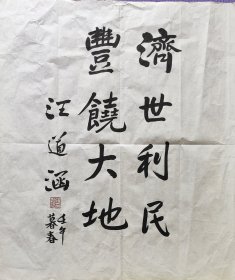 濟世利民
豐饒大地
汪道涵
壬午
暮春